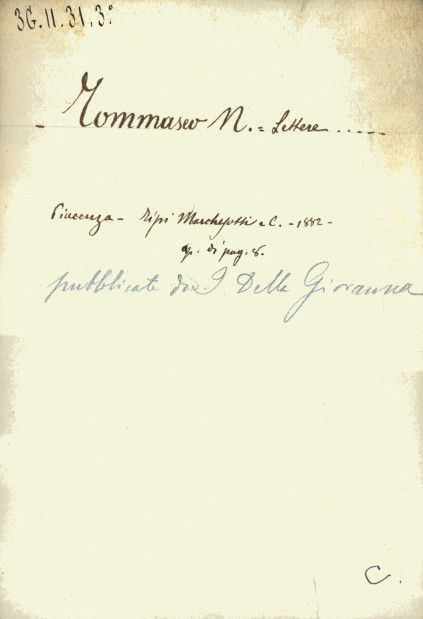 36.11.31.3°
Tommaseo N. = Lettere .....
Piacenza - Tipi Marchesotti e C. - 1882 -
op. di pag. 8.
pubblicate da I. Della Giovanna
C.